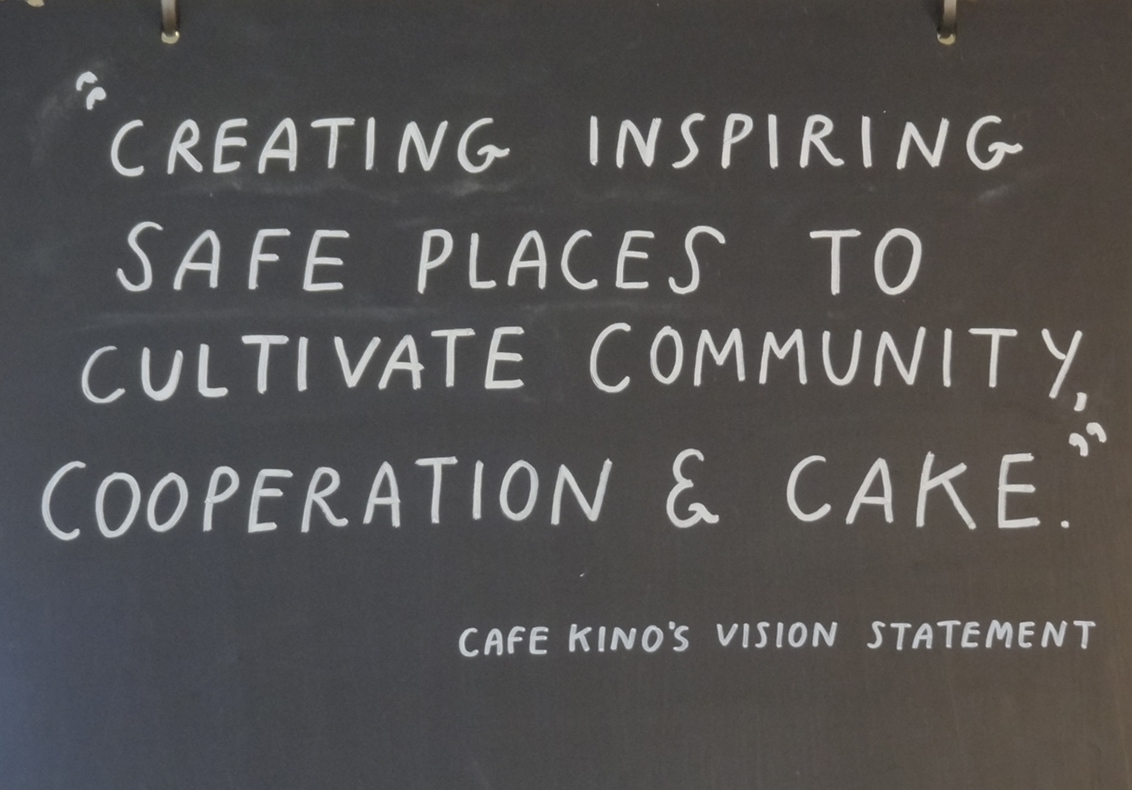 “CREATING INSPIRING
SAFE PLACES TO
CULTIVATE COMMUNITY,
COOPERATION & CAKE.”
CAFE KINO'S VISION STATEMENT